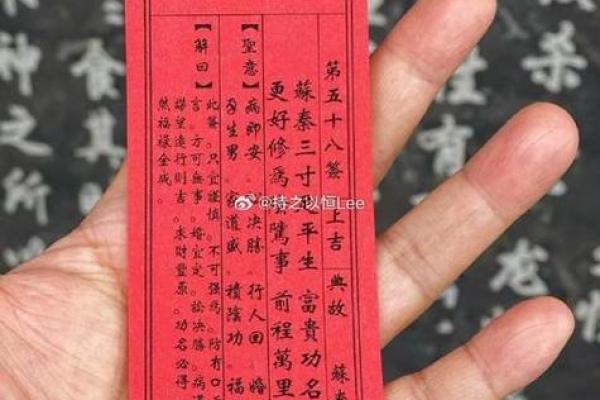 第五十八簽 上吉 典故 蘇秦
蘇秦三寸平生 富貴功名
更好修為騭事 前程萬里
【聖意】病即安。決勝。行人回。婚
孕生男。家道盛。積陰功。福
【解曰】此簽。只宜謹慎。不可強為。防有口
言。方可無事。婚宜定。訟決勝。病
謀望遠行則吉。求財豐厚。功名必得
然福祿全成。
@持之以恒Lee
殺
食其
神之所